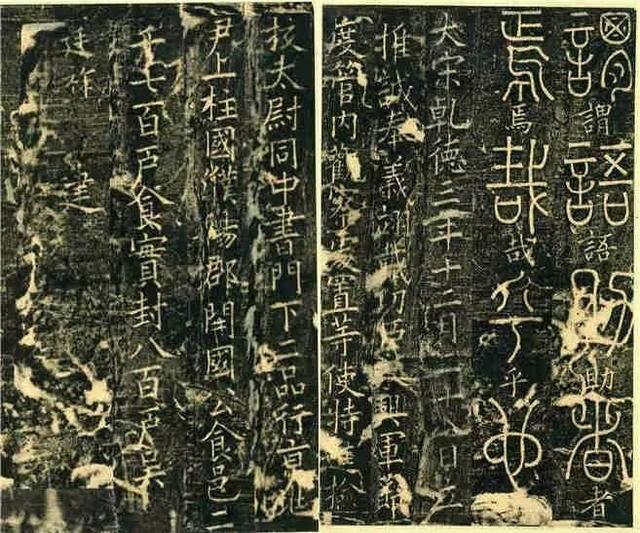 謂謂語語助助者者
焉焉哉哉乎乎也
大宋乾德三年十二月日立
推誠奉義翊戴功臣永興軍節
度管内觀察處置等使特檢
校太尉同中書門下二品行京兆
尹上柱國濮陽郡開國公食邑二
千七百戶食實封八百戶吳
廷祚建